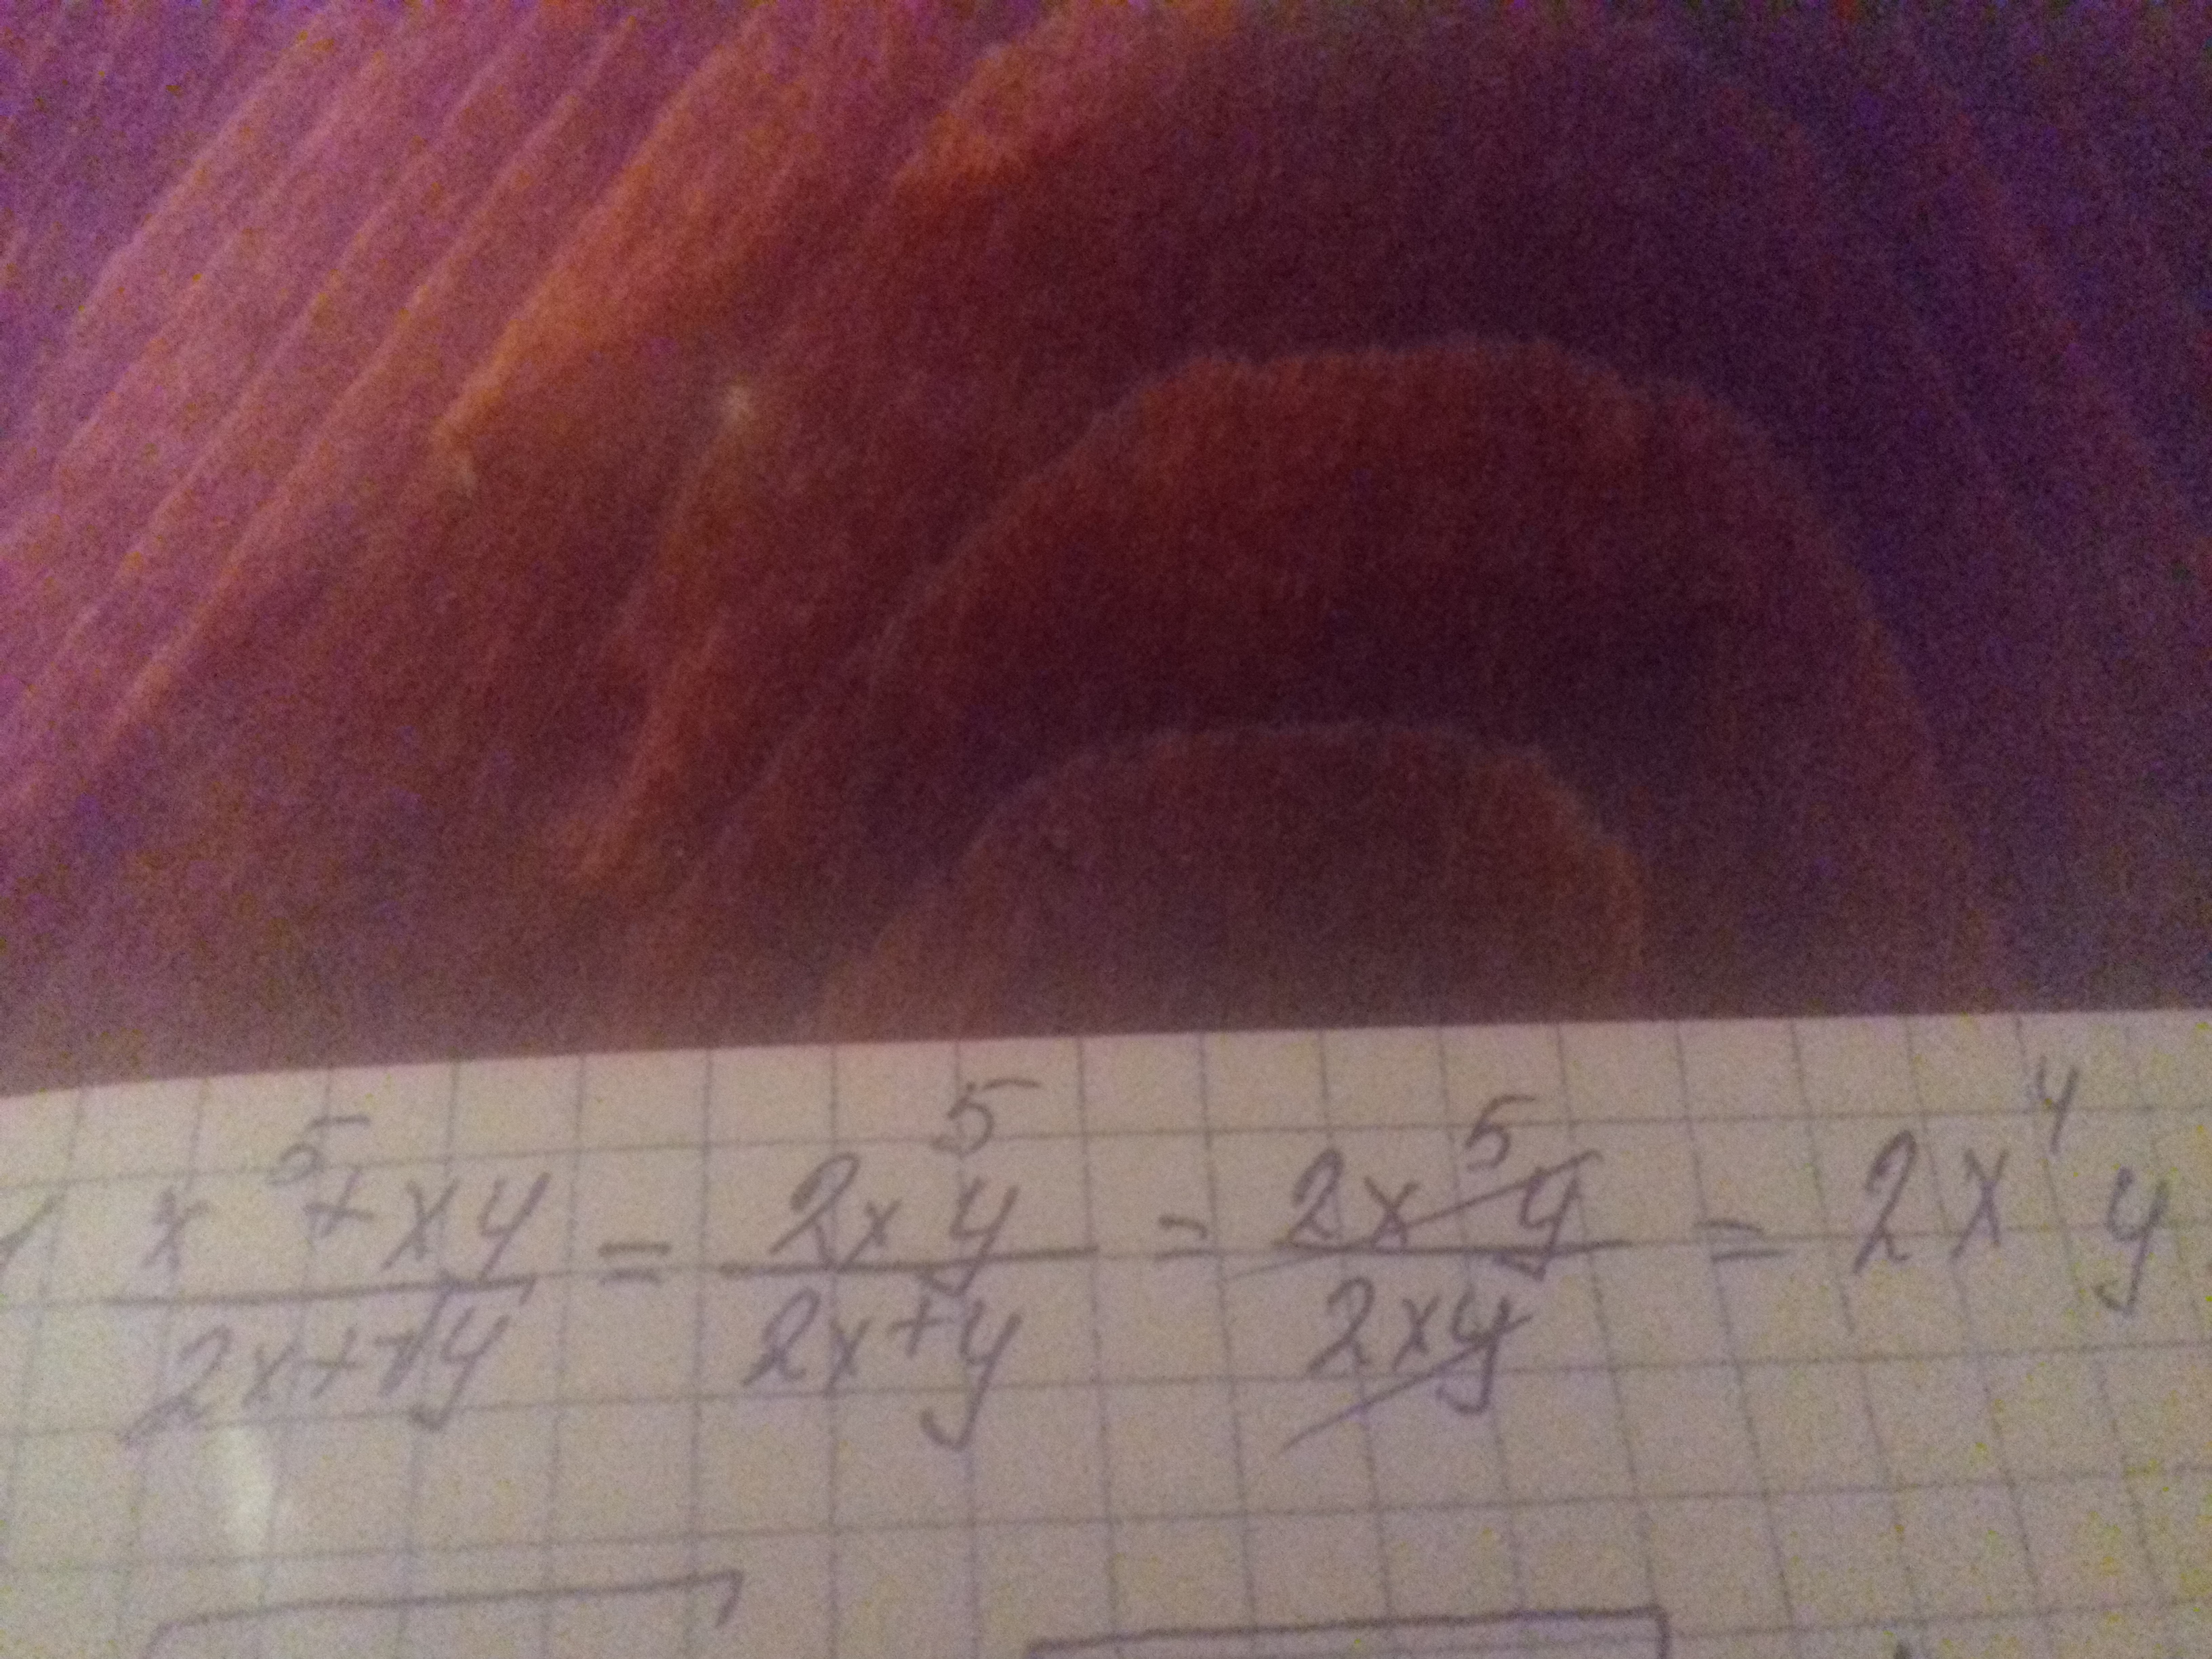 x⁵ + xy / 2x + y = 2x⁵y / 2x + y = 2x⁵y / 2xy = 2x⁴y